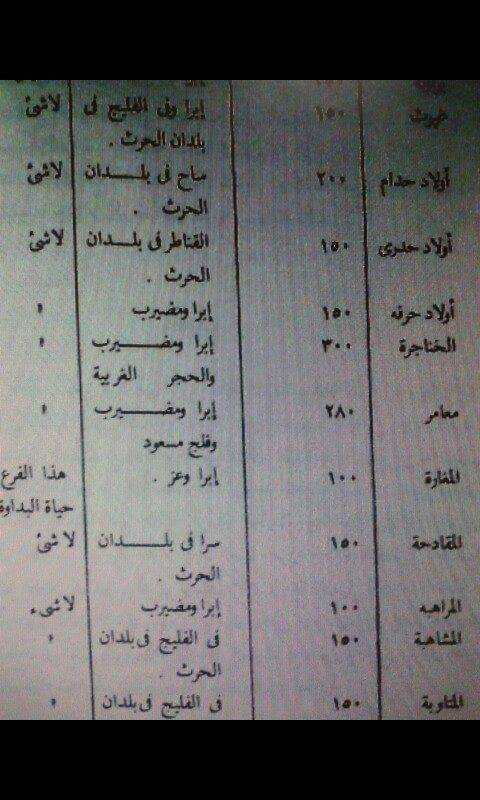 غيوث ١٥٠ إبرا وفى الفليج فى لاشئ
بلدان الحرث .
أولاد حدام ٢٠٠ مباح فى بلدان لاشئ
الحرث .
أولاد حدرى ١٥٠ القناطر فى بلدان لاشئ
الحرث .
أولاد حرفه ١٥٠ إبرا ومضيرب "
الخناجرة ٣٠٠ إبرا ومضيرب "
والحجر الغربية
معامر ٢٨٠ إبرا ومضيرب "
وفلج مسعود
المغارة ١٠٠ إبرا وعز . هذا الفرع
حياة البداوة
المقادحة ١٥٠ سرا فى بلدان لاشئ
الحرث .
المراهبه ١٠٠ إبرا ومضيرب لاشىء
المشاهبة ١٥٠ فى الفليج فى بلدان "
الحرث .
المناوبة ١٥٠ فى الفليج فى بلدان "